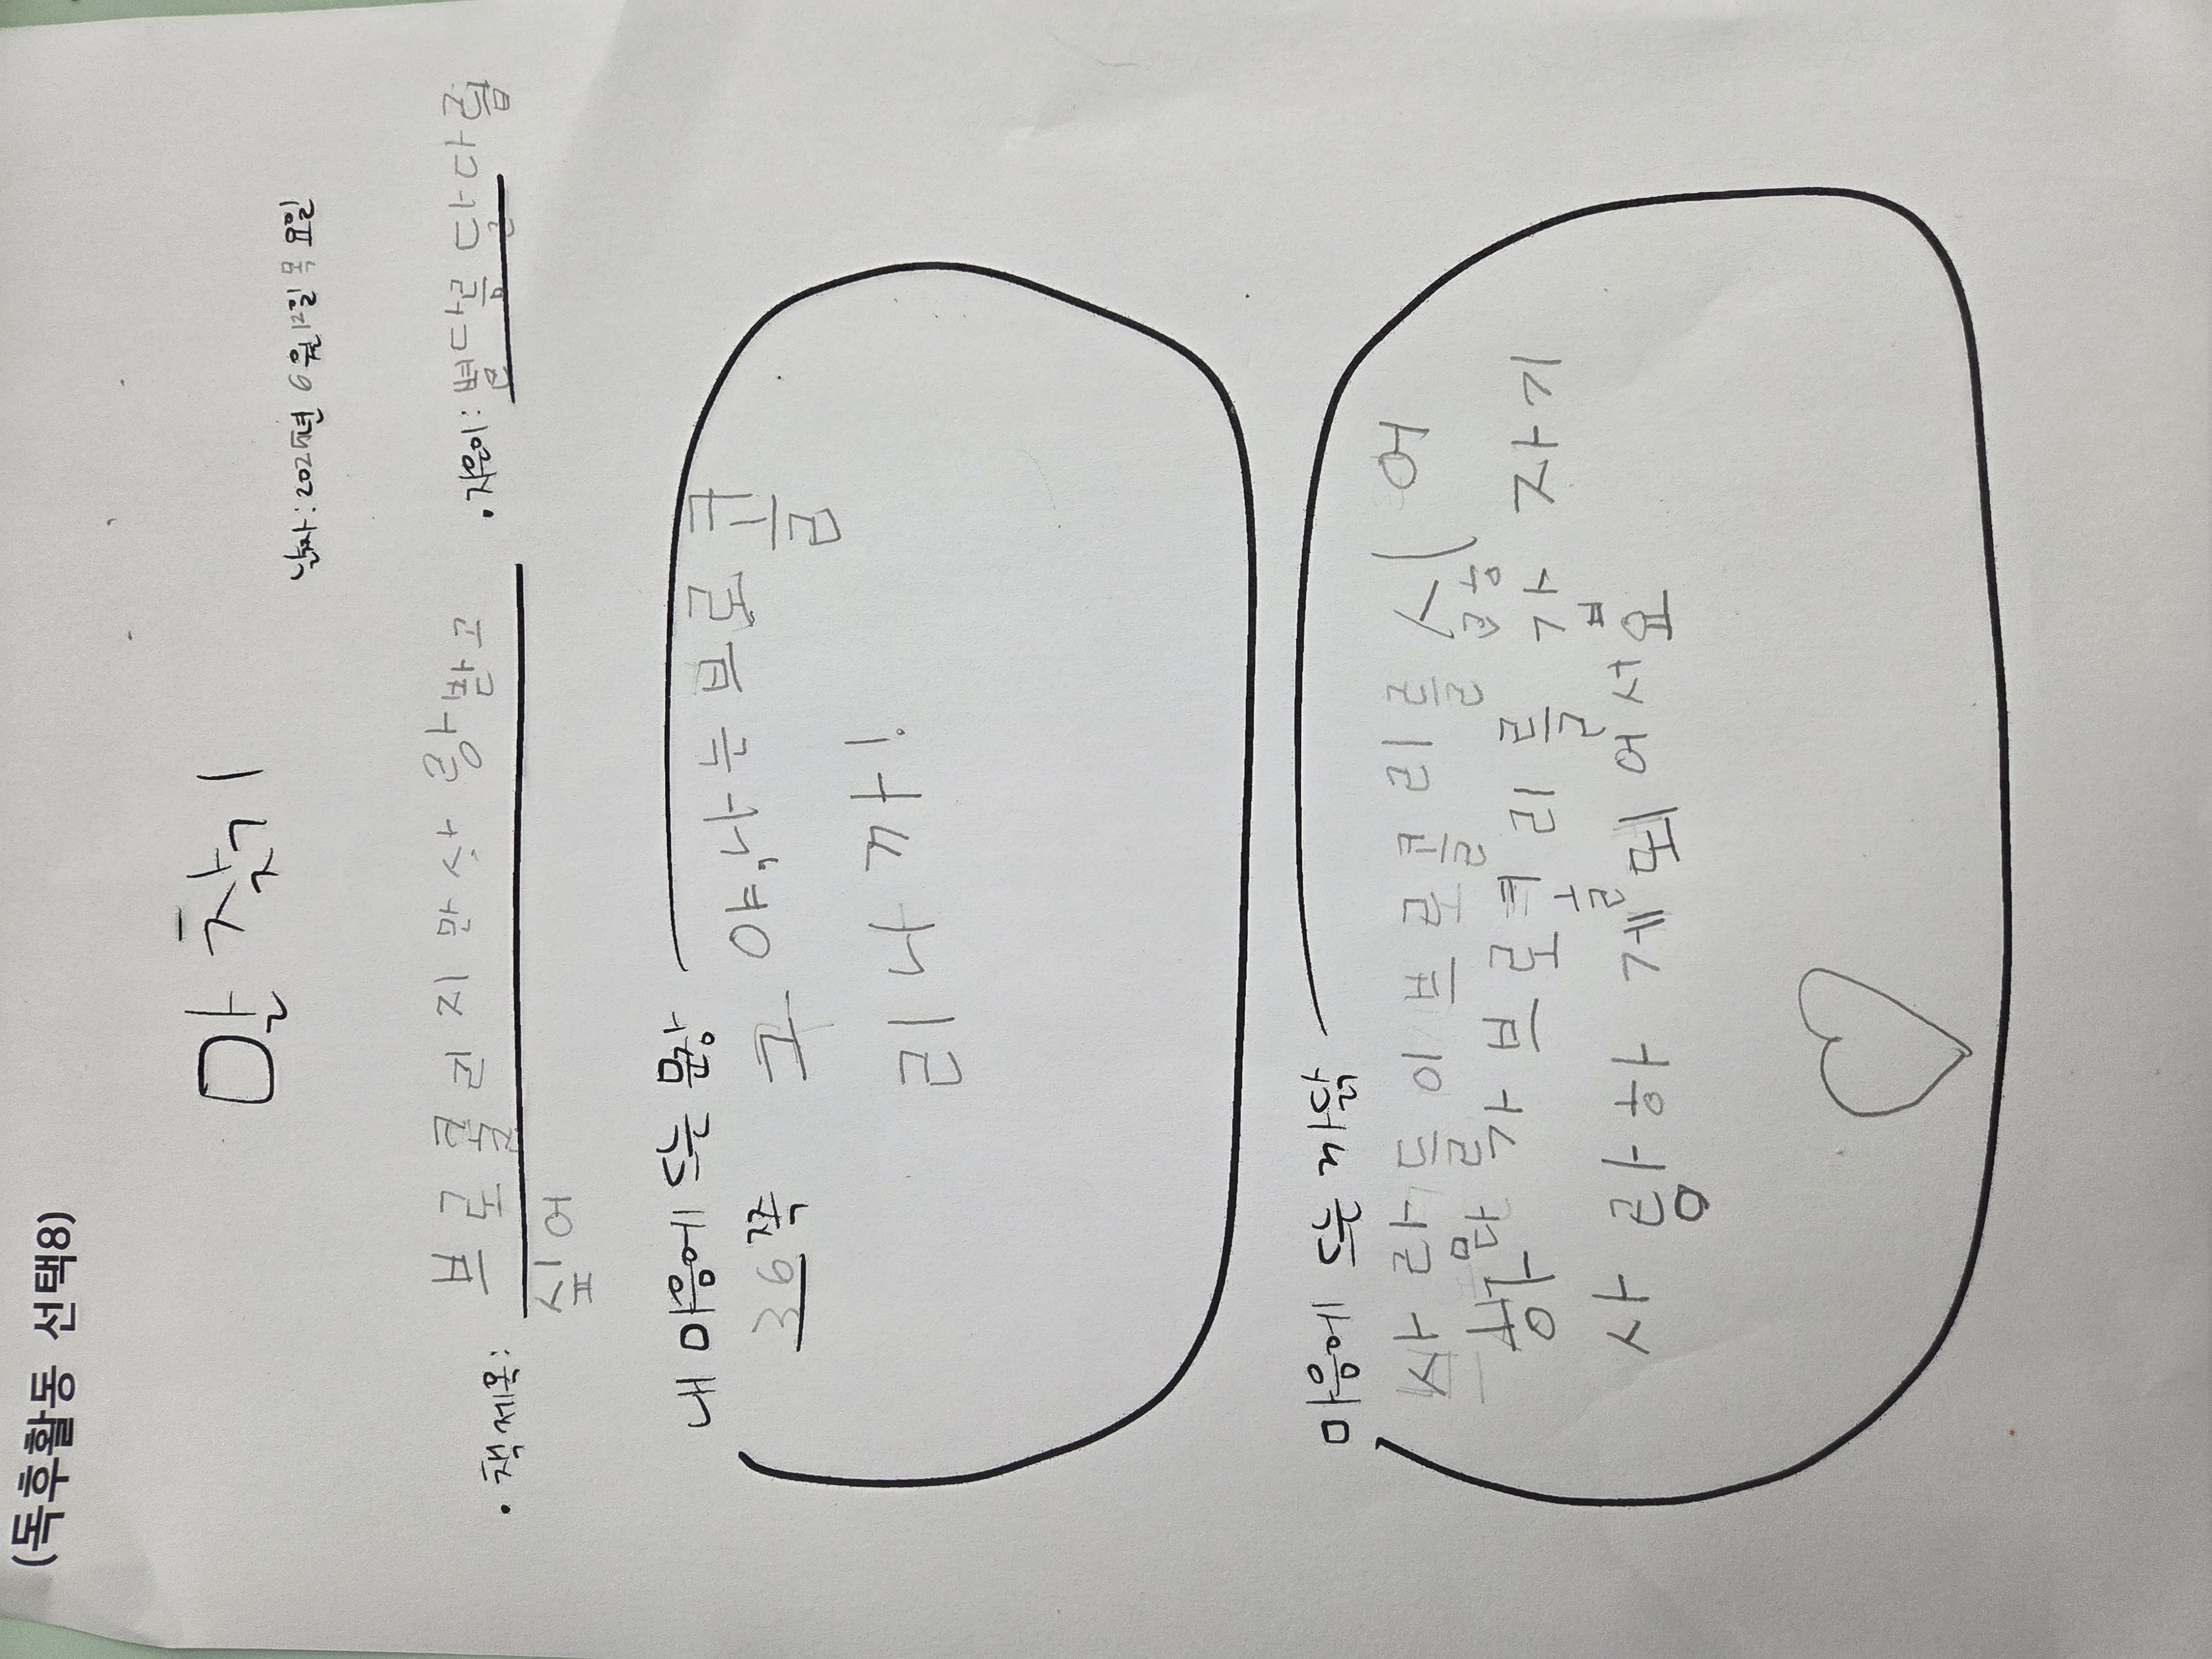 (독후활동 선택8)
말 찾기
날짜: 2025년 6월 12일 목요일
• 책제목: 브로콜리지만 사랑받고 싶어
• 지은이: 별다름 달다름
내 마음에 드는 문장
36쪽 야, 나는 브로콜
리니까!
마음에 드는 까닭
사람들이 브로콜리를 싫어
브로콜리를 갑자기
사랑하게 돼어서요